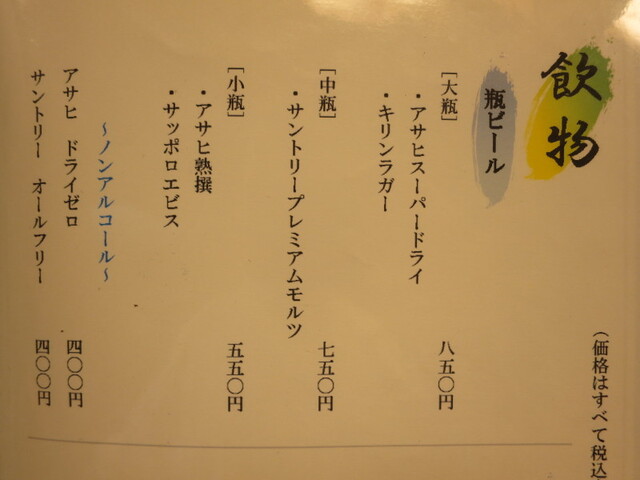 飲物
(価格はすべて税込
瓶ビール
[大瓶] 八五〇円
・アサヒスーパードライ
・キリンラガー
[中瓶] 七五〇円
・サントリープレミアムモルツ
[小瓶] 五五〇円
・アサヒ熟撰
・サッポロエビス
～ノンアルコール～
アサヒ ドライゼロ 四〇〇円
サントリー オールフリー 四〇〇円